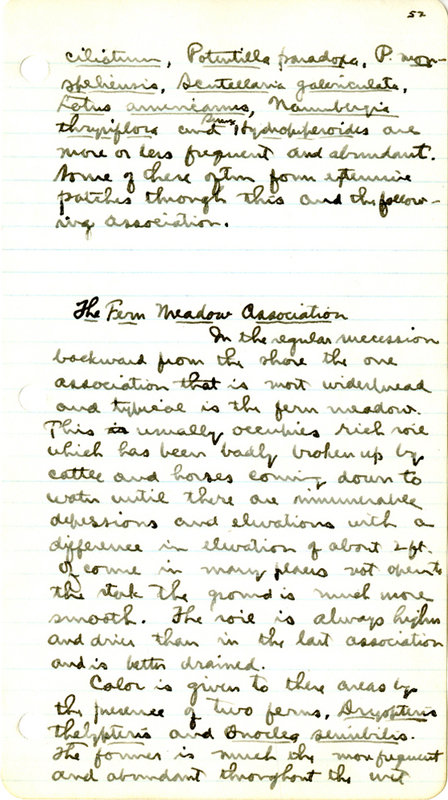 52
ciliatum, Potentilla paradoxa, P. mon-
speliensis, Scutellaria galericulata,
Lotus americanus, Naumbergia
thrysiflora and Sium Hydropiperoides are
more or less frequent and abundant.
Some of these often form extensive
patches through this and the follow-
ing association.
The Fern Meadow Association
In the regular succession
backward from the shore the one
association that is most widespread
and typical is the fern meadow.
This is usually occupies rich soil
which has been badly broken up by
cattle and horses coming down to
water until there are innumerable
depressions and elevations with a
difference in elevation of about 2 ft.
Of course in many places not open to
the stock the ground is much more
smooth. The soil is always higher
and drier than in the last association
and is better drained.
Color is given to these areas by
the presence of two ferns, Dryopteris
thelypteris and Onoclea sensibilis.
The former is much the more frequent
and abundant throughout the wet